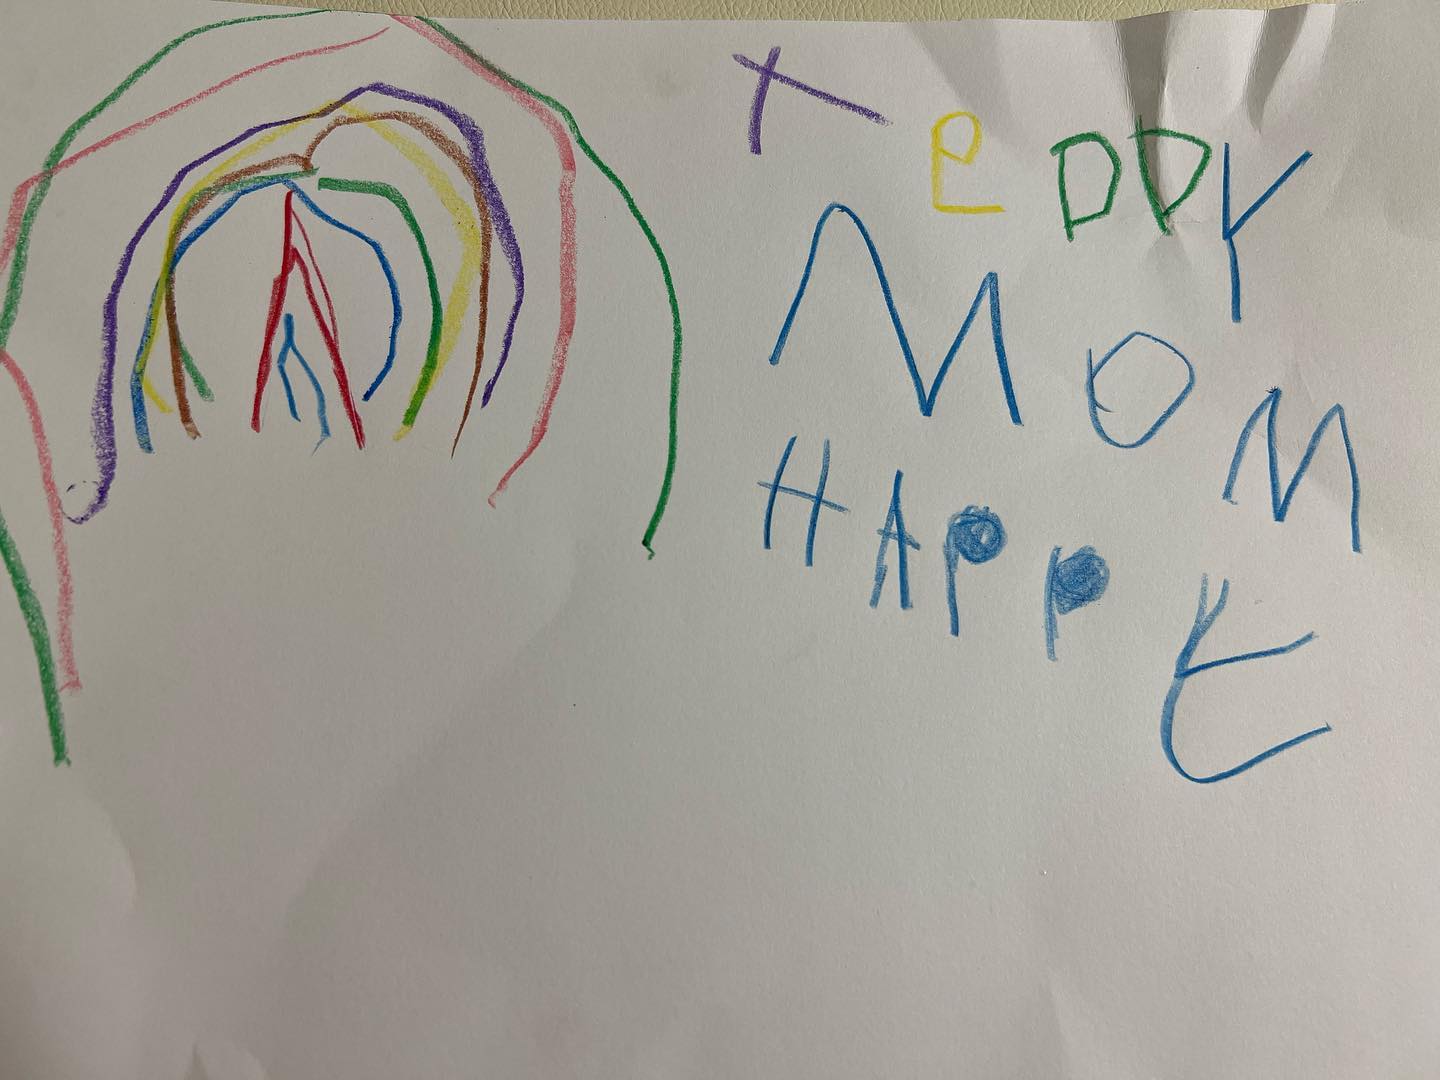 TeDDY
MOM
HAPPY